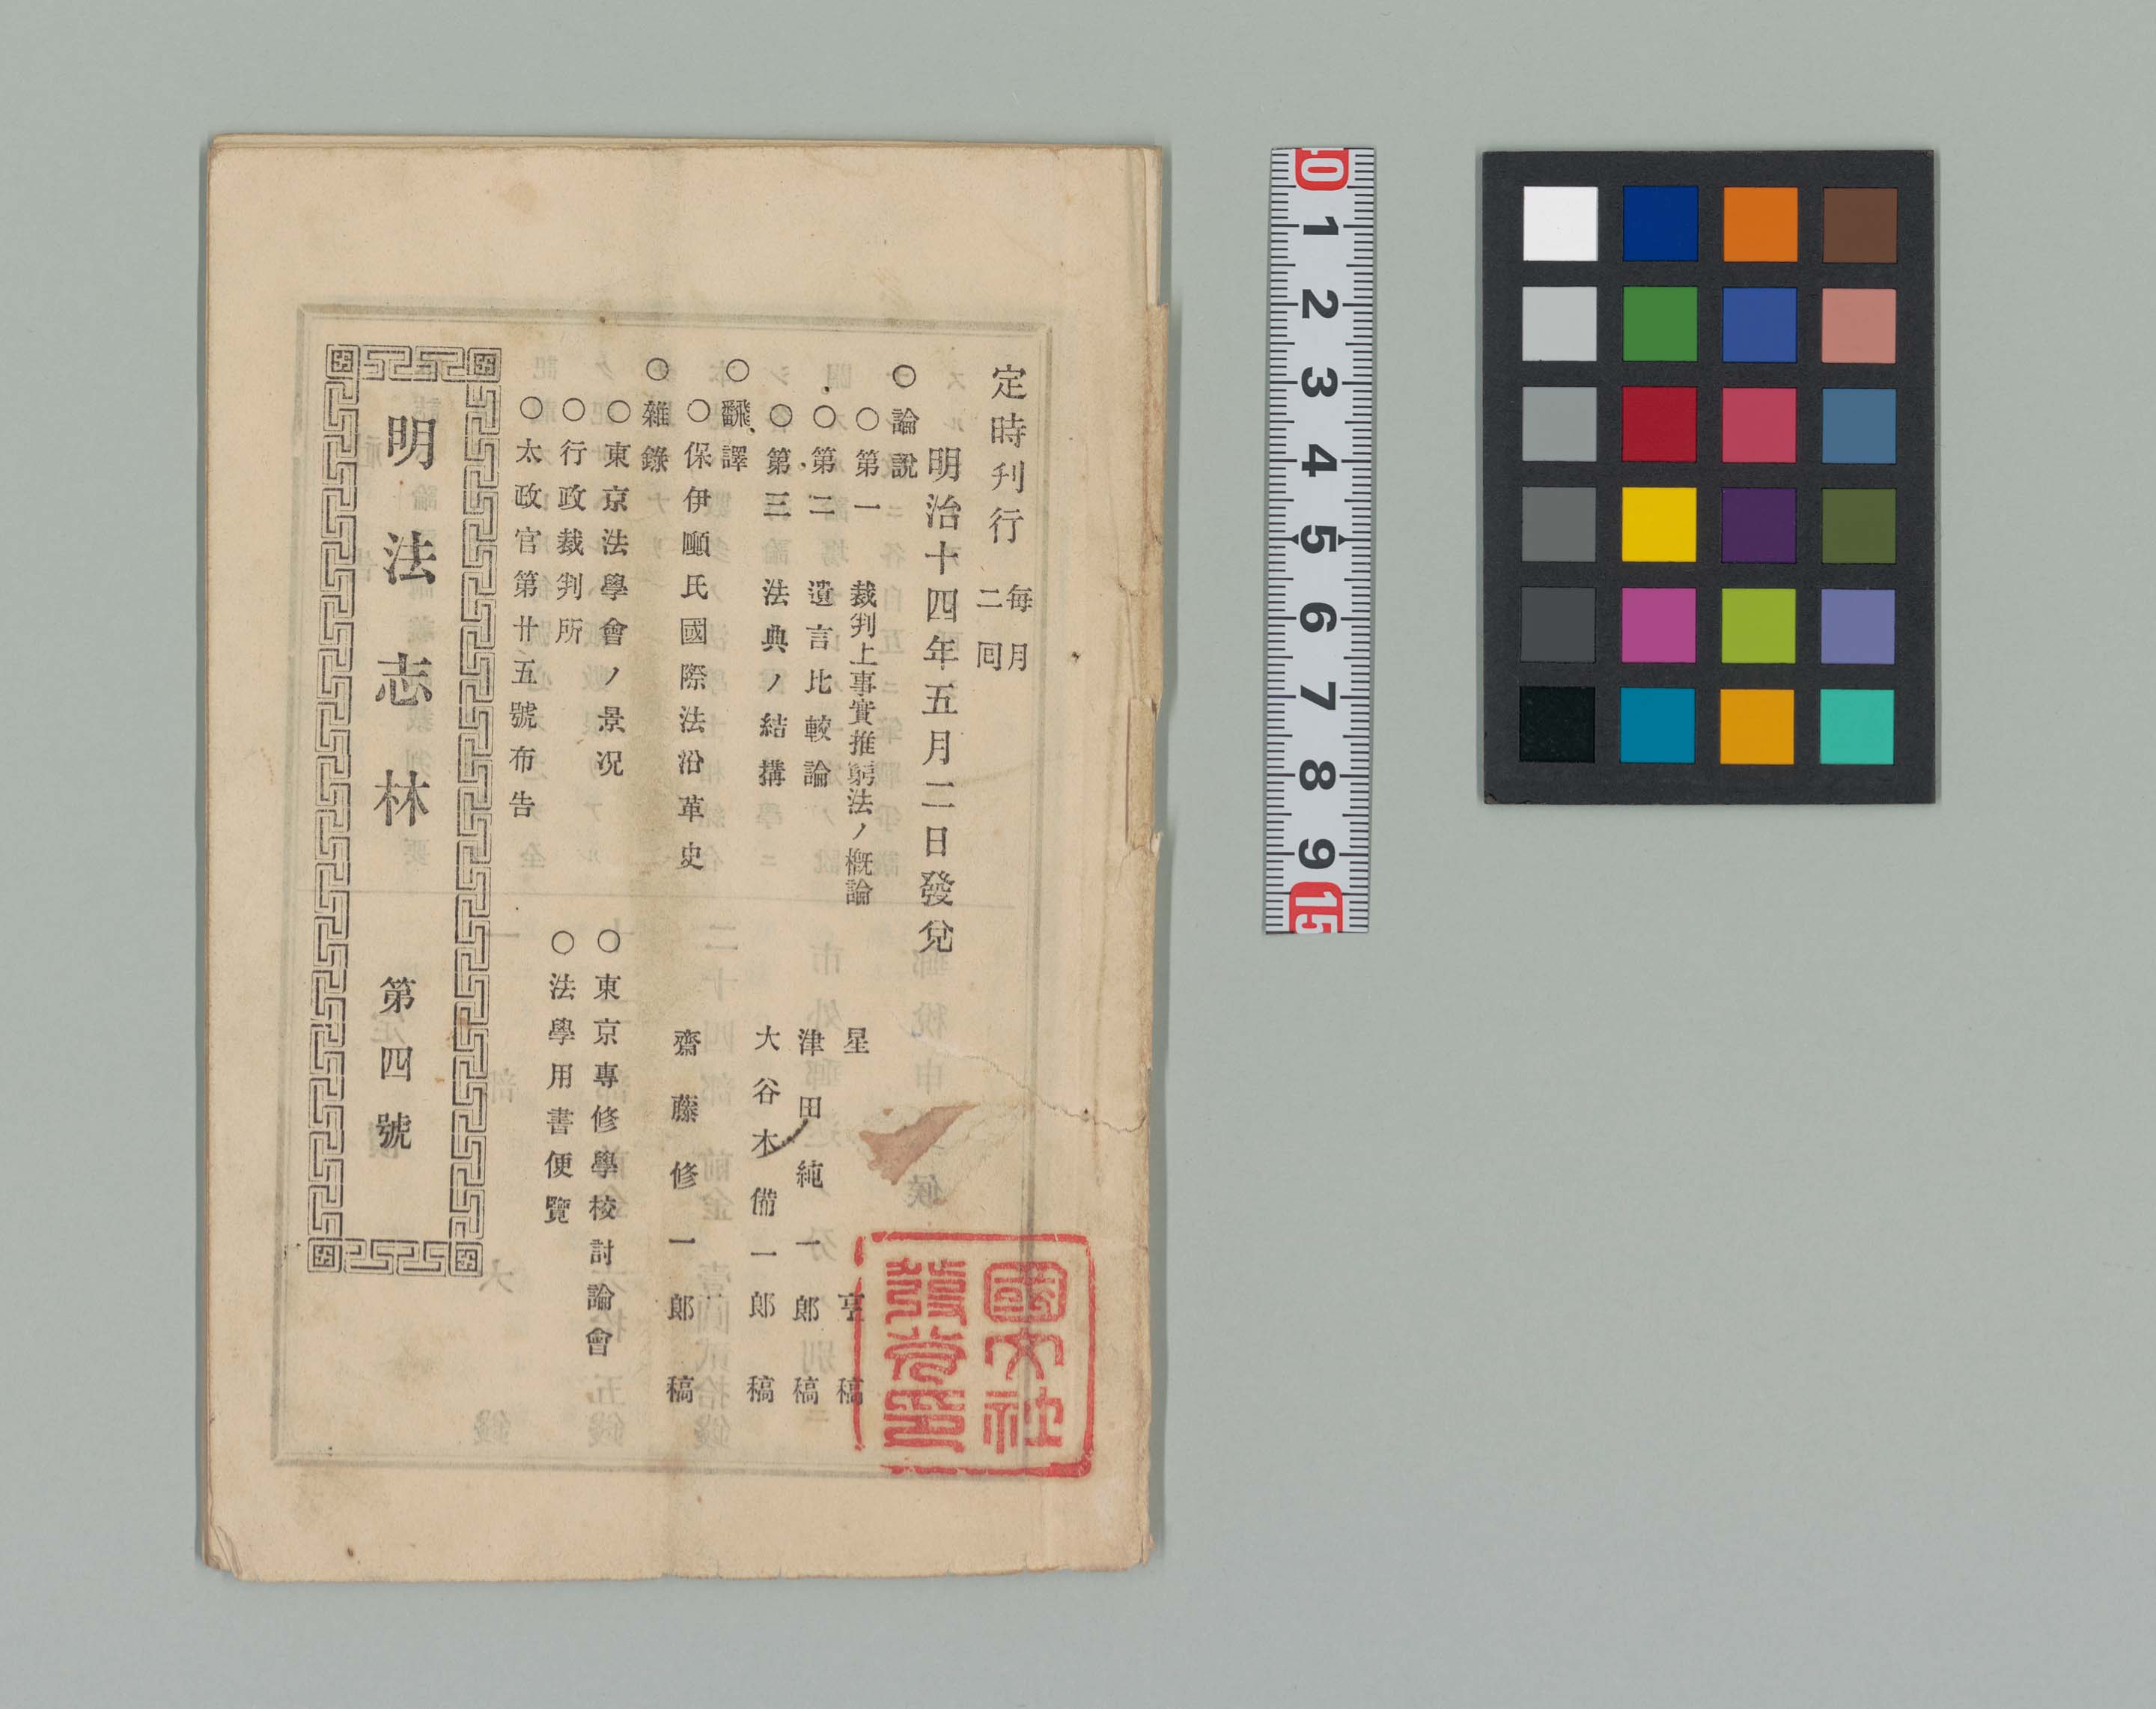 定時刊行 毎月二囘
明治十四年五月二日發兌
○論說
○第一 裁判上事實推窮法ノ概論 星亨稿
○第二 遺言比較論 津田純一郎稿
○第三 法典ノ結搆 大谷木備一郎稿
○飜譯
○保伊頓氏國際法沿革史 齋藤修一郎稿
○雜錄
○東京法學會ノ景况 ○東京專修學校討論會
○行政裁判所 ○法學用書便覽
○太政官第廿五號布告
明法志林 第四號
國文社
發兌印
0 1 2 3 4 5 6 7 8 9 15